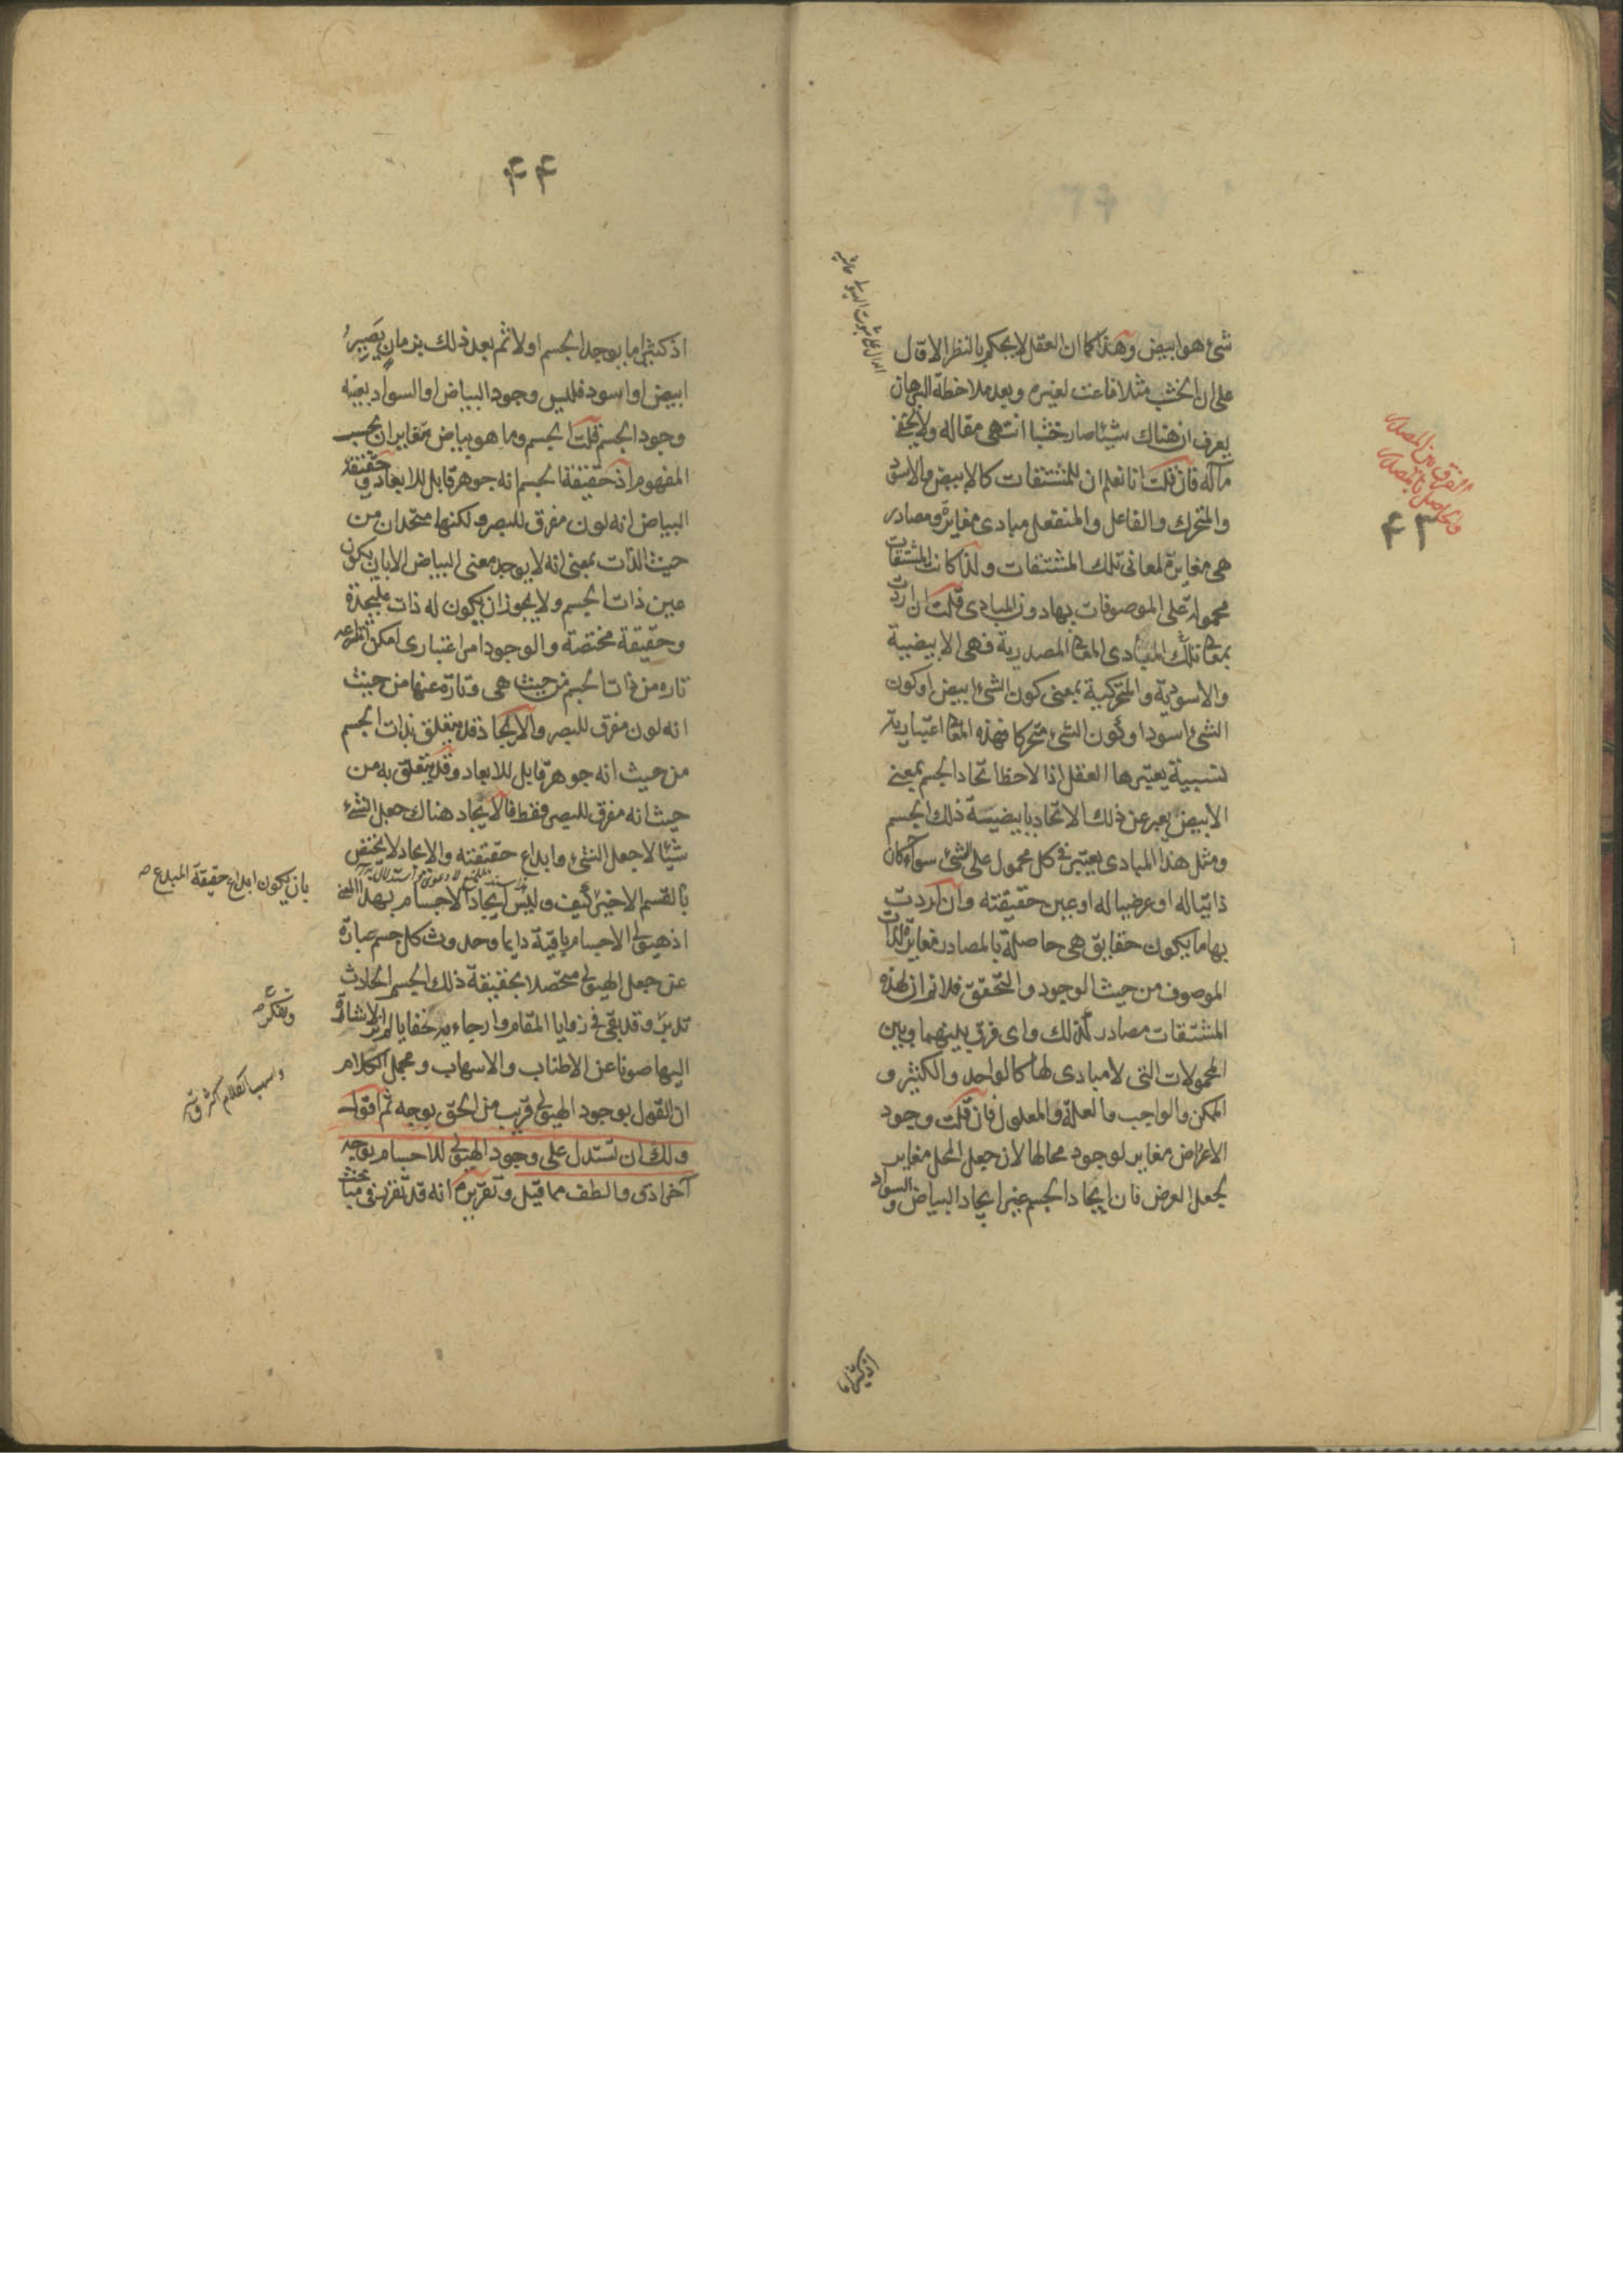 شئ هو ابيض وهذا كما ان العقل لا يحكم بالنظر الاول
على ان الخشب مثلا ناعت لغيره وبعد ملاحظة البرهان
يعرف ان هناك شيئا صار خشبا انتهى مقاله ولا يخفى
مآله فان قلت انا نعلم ان للمشتقات كالابيض والاسود
والمتحرك والفاعل والمنفعل مبادى مغايرة ومصادر
هى مغايرة لمعانى تلك المشتقات ولذا كانت المشتقات
محمولة على الموصوفات بها دون المبادى قلت ان اردت
تلك المبادى المصدرية فهى الابيضية
والاسودية والمتحركية بمعنى كون الشئ ابيض او كون
الشئ اسود او كون الشئ متحركا فهذه اعتبارية
نسبية يعتبرها العقل اذا لاحظ اتحاد الجسم بمعنى
الابيض يعبر عن ذلك الاتحاد بابيضية ذلك الجسم
ومثل هذا المبادى يعتبر فى كل محمول على الشئ سواء كان
ذاتيا له او عرضيا له او عين حقيقته وان اردت
بها ما يكون حقايق هى حاصلة بالمصادر مغايرة لذات
الموصوف من حيث الوجود والتحقق فلا نم ان لهذه
المشتقات مصادر كذلك واى فرق بينهما وبين
المحمولات التى لا مبادى لها كالواحد والكثير و
الممكن والواجب والعلة والمعلول فان قلت وجود
الاعراض مغاير لوجود محالها لان جعل المحل مغاير
لجعل العرض فان ايجاد الجسم غير ايجاد البياض والسواد
الفرق بين المصدر
والحاصل بالمصدر
۴۳
اذ كثيرا ما
۴۴
اذ كثيرا ما يوجد الجسم اولا ثم بعد ذلك بزمان يصير
ابيض او اسود فليس وجود البياض او السواد بعينه
وجود الجسم قلت الجسم وما هو بياض متغايران بحسب
المفهوم اذ حقيقة الجسم انه جوهر قابل للابعاد وحقيقة
البياض انه لون مفرق للبصر ولكنها متحدان من
حيث الذات بمعنى انه لا يوجد معنى البياض الا بان يكون
عين ذات الجسم ولا يجوز ان يكون له ذات عليحدة
وحقيقة مختصة والوجود امر اعتبارى امكن انتزاعه
تارة من ذات الجسم من حيث هى وتارة عنها من حيث
انه لون مفرق للبصر والايجاد قد يتعلق بذات الجسم
من حيث انه جوهر قابل للابعاد وقد يتعلق به من
حيث انه مفرق للبصر فقط فالايجاد هناك جعل الشئ
شيئا لا جعل الشئ وابداع حقيقته والايجاد لا يختص
بالقسم الاخير كيف وليس ايجاد الاجسام بهذا النحو
اذ هيولى الاجسام باقية دايما وحدوث كل جسم عبارة
عن جعل الهيولى متحصلا بحقيقة ذلك الجسم الحادث
تدبر وقد بقى فى زوايا المقام وارجاءه خفايا لم نر الاشارة
اليها صونا عن الاطناب والاسهاب ومجمل الكلام
ان القول بوجود الهيولى قريب من الحق بوجه ثم اقول
ولك ان تستدل على وجود الهيولى للاجسام بوجه
آخر ادق والطف مما قيل وتقريره انه قد تقرر فى مباحث
بان يكون ابداع حقيقة المبدع
وتفكر